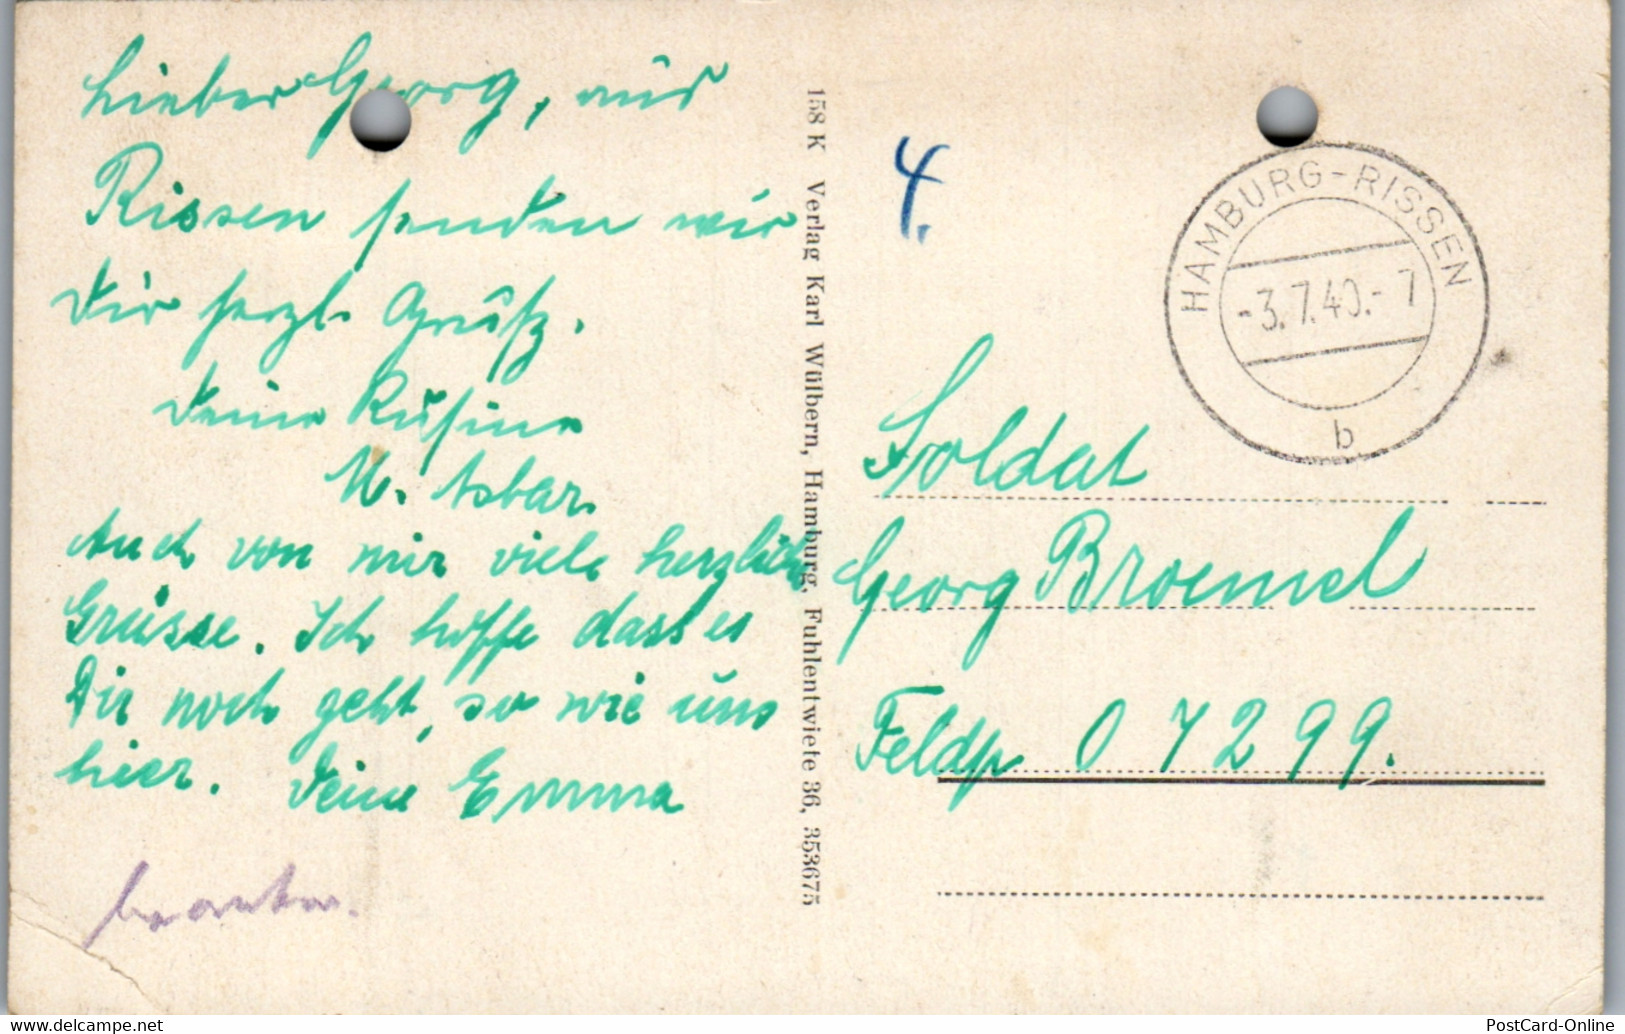 Lieber Georg, aus
Rissen senden wir
Dir herzl. Grüße.
Deine Rufina
u. Asbar.
Auch von mir viele herzliche
Grüsse. Ich hoffe dass es
Dir noch geht, so wie uns
hier. Deine Emma
158 K Verlag Karl Wülbern, Hamburg, Fuhlentwiete 36, 353675
4.
HAMBURG-RISSEN
-3.7.40.-7
b
Soldat
Georg Broemel
Feldp 07299.
PostCard-Online
www.delcampe.net